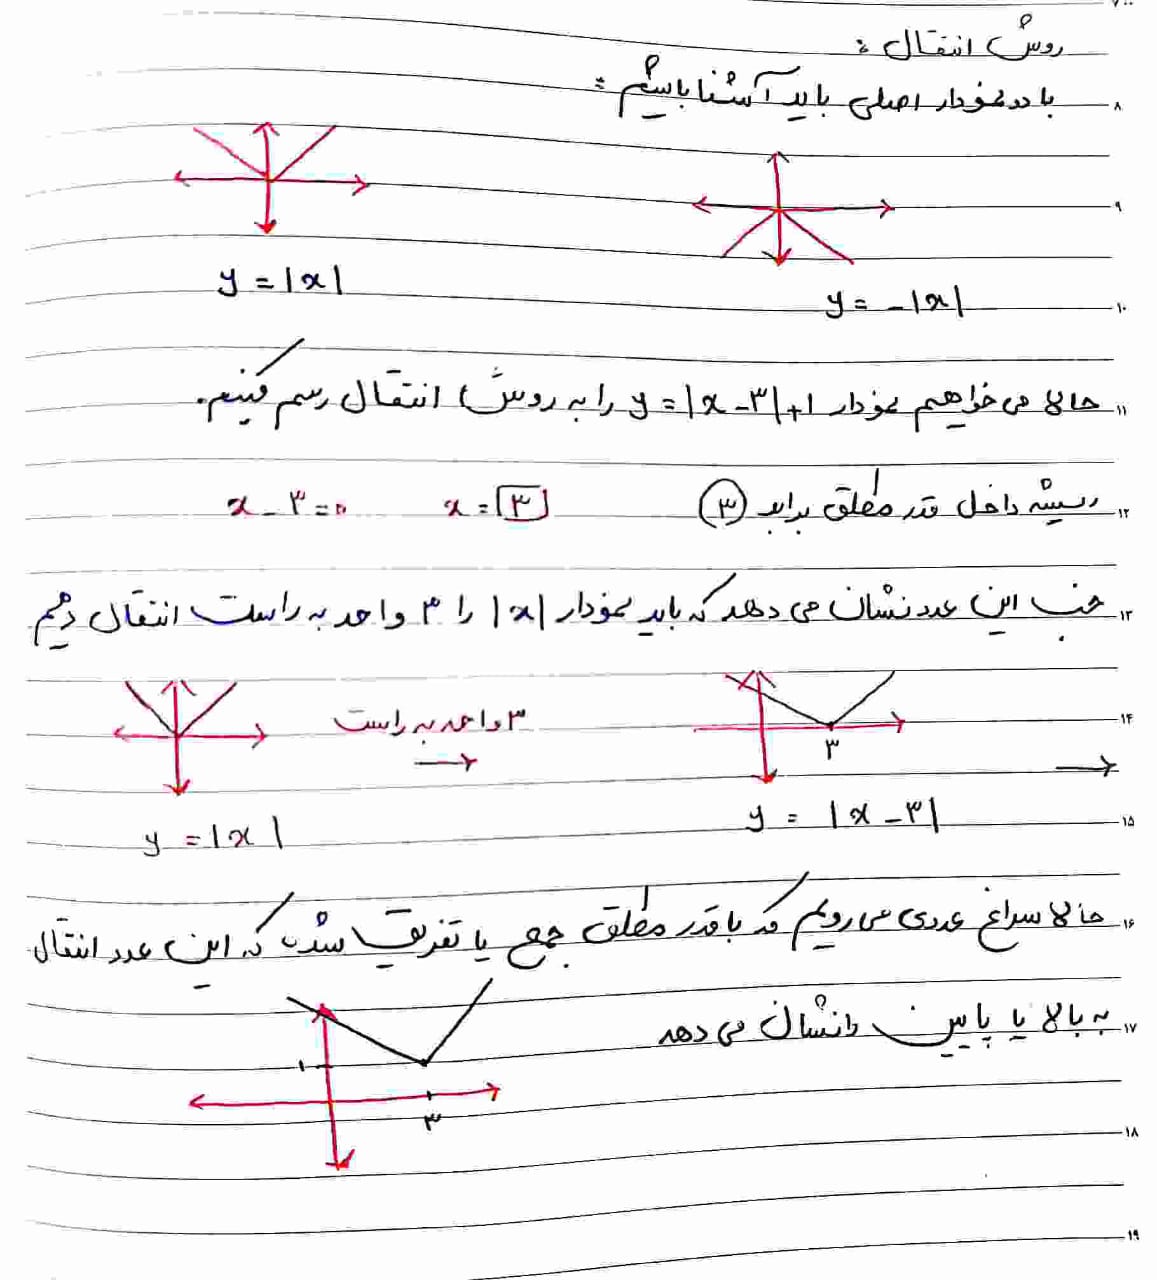 روش انتقال :
با دو نمودار اصلی باید آشنا باشیم :
y = |x|
y = -|x|
حالا می‌خواهیم نمودار y = |x-۳|+۱ را به روش انتقال رسم کنیم.
ریشه داخل قدر مطلق برابر ۳ x = ۳ x - ۳ = ۰
خب این عدد نشان می دهد که باید نمودار |x| را ۳ واحد به راست انتقال دهیم
۳ واحد به راست
۳
y = |x|
y = |x - ۳|
حالا سراغ عددی می رویم که با قدر مطلق جمع یا تفریق شده که این عدد انتقال
به بالا یا پایین را نشان می دهد
۱
۳
۸
۹
۱۰
۱۱
۱۲
۱۳
۱۴
۱۵
۱۶
۱۷
۱۸
۱۹